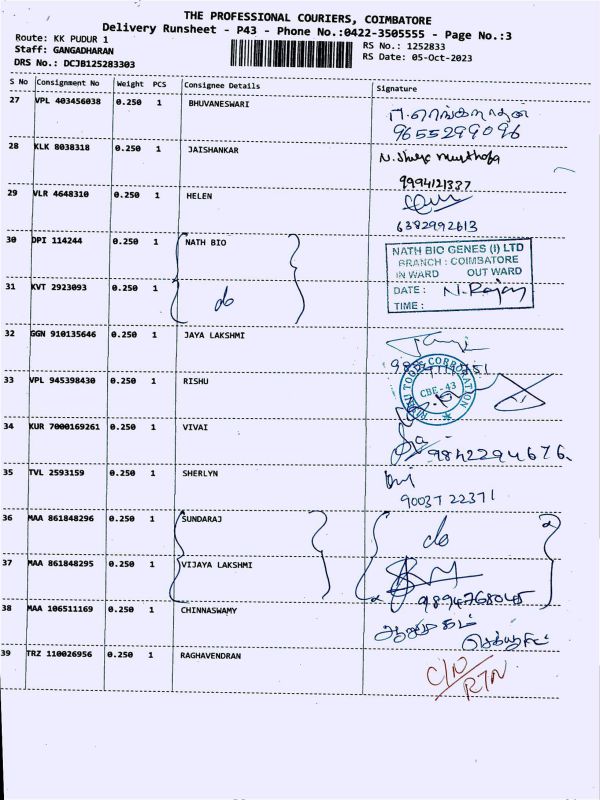 THE PROFESSIONAL COURIERS, COIMBATORE
Delivery Runsheet - P43 - Phone No.:0422-3505555 - Page No.:3
Route: KK PUDUR 1
RS No.: 1252833
Staff: GANGADHARAN
RS Date: 05-Oct-2023
DRS No.: DCJB125283303
S No Consignment No Weight PCS Consignee Details Signature
27 VPL 403456038 0.250 1 BHUVANESWARI
9655299096
28 KLK 8038318 0.250 1 JAISHANKAR
9994121337
29 VLR 4648310 0.250 1 HELEN
6382992613
30 DPI 114244 0.250 1 NATH BIO
NATH BIO GENES (I) LTD
BRANCH : COIMBATORE
IN WARD OUT WARD
31 KVT 2923093 0.250 1 do
DATE : N. Rajan
TIME :
32 GGN 910135646 0.250 1 JAYA LAKSHMI
33 VPL 945398430 0.250 1 RISHU
CBE - 43
34 KUR 7000169261 0.250 1 VIVAI
9842294676.
35 TVL 2593159 0.250 1 SHERLYN
9003722371
36 MAA 861848296 0.250 1 SUNDARAJ
do
37 MAA 861848295 0.250 1 VIJAYA LAKSHMI
9894768045
38 MAA 106511169 0.250 1 CHINNASWAMY
39 TRZ 110026956 0.250 1 RAGHAVENDRAN
C/N
RTN